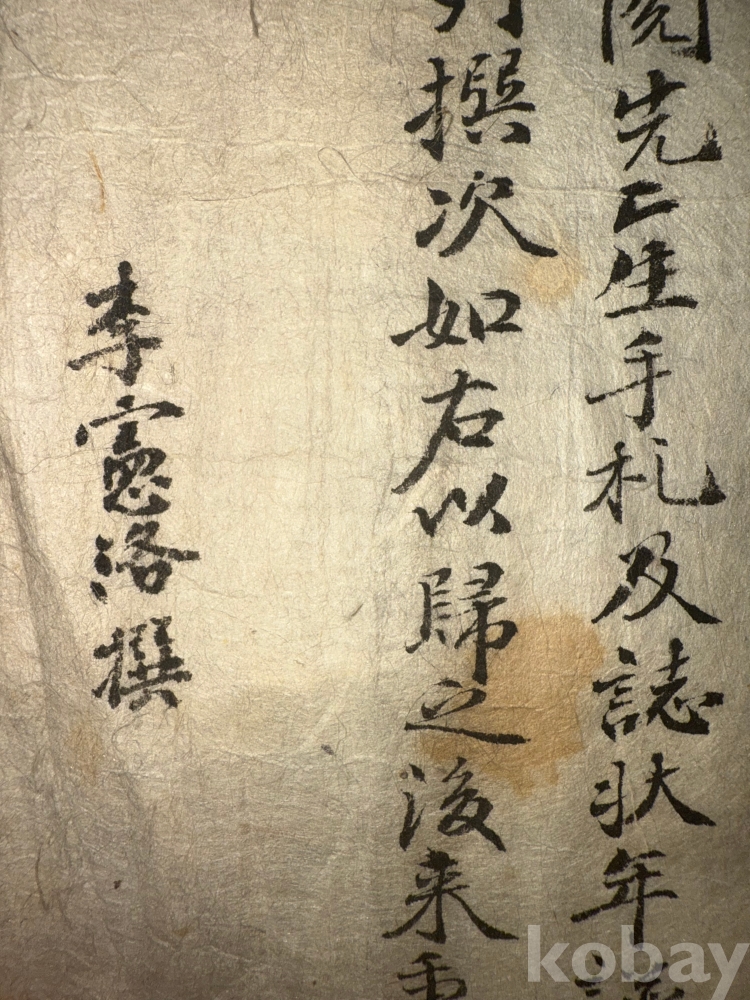 閲先亡生手札及誌狀年譜
撰次如右以歸之後来
李憲洛撰
kobay